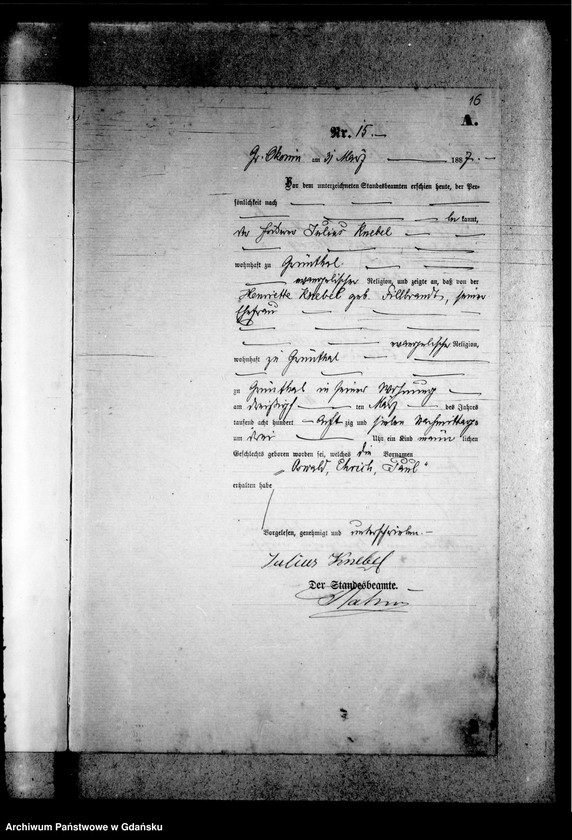 16
A.
Nr. 15.
Gr. Okonin am 31 März 1887.
Vor dem unterzeichneten Standesbeamten erschien heute, der Per-
sönlichkeit nach
be kannt,
der Julius Knebel
wohnhaft zu Grünthal
evangelischer Religion, und zeigte an, daß von der
Henriette Knebel geb. Fillbrandt, seiner
Ehefrau
evangelischer Religion,
wohnhaft zu Grünthal
zu Grünthal in seiner Wohnung
am dreißigsten März des Jahres
tausend acht hundert acht zig und sieben Nachmittags
um drei Uhr ein Kind männ lichen
Geschlechts geboren worden sei, welches die Vornamen
Oswald, Ehrich, Paul
erhalten habe
Vorgelesen, genehmigt und unterschrieben.
Julius Knebel
Der Standesbeamte.
Archiwum Państwowe w Gdańsku